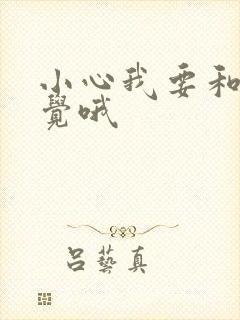 小心我要和
覺哦
呂藝真